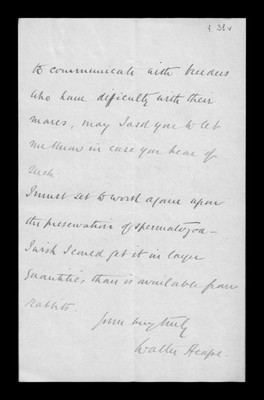 to communicate with breeders
who have difficulty with their
mares, may I ask you to let
me know in case you hear of
such
I must set to work again upon
the preservation of spermatozoa —
I wish I could get it in larger
quantities than is available from
rabbits.
Yours very truly
Walter Heape.